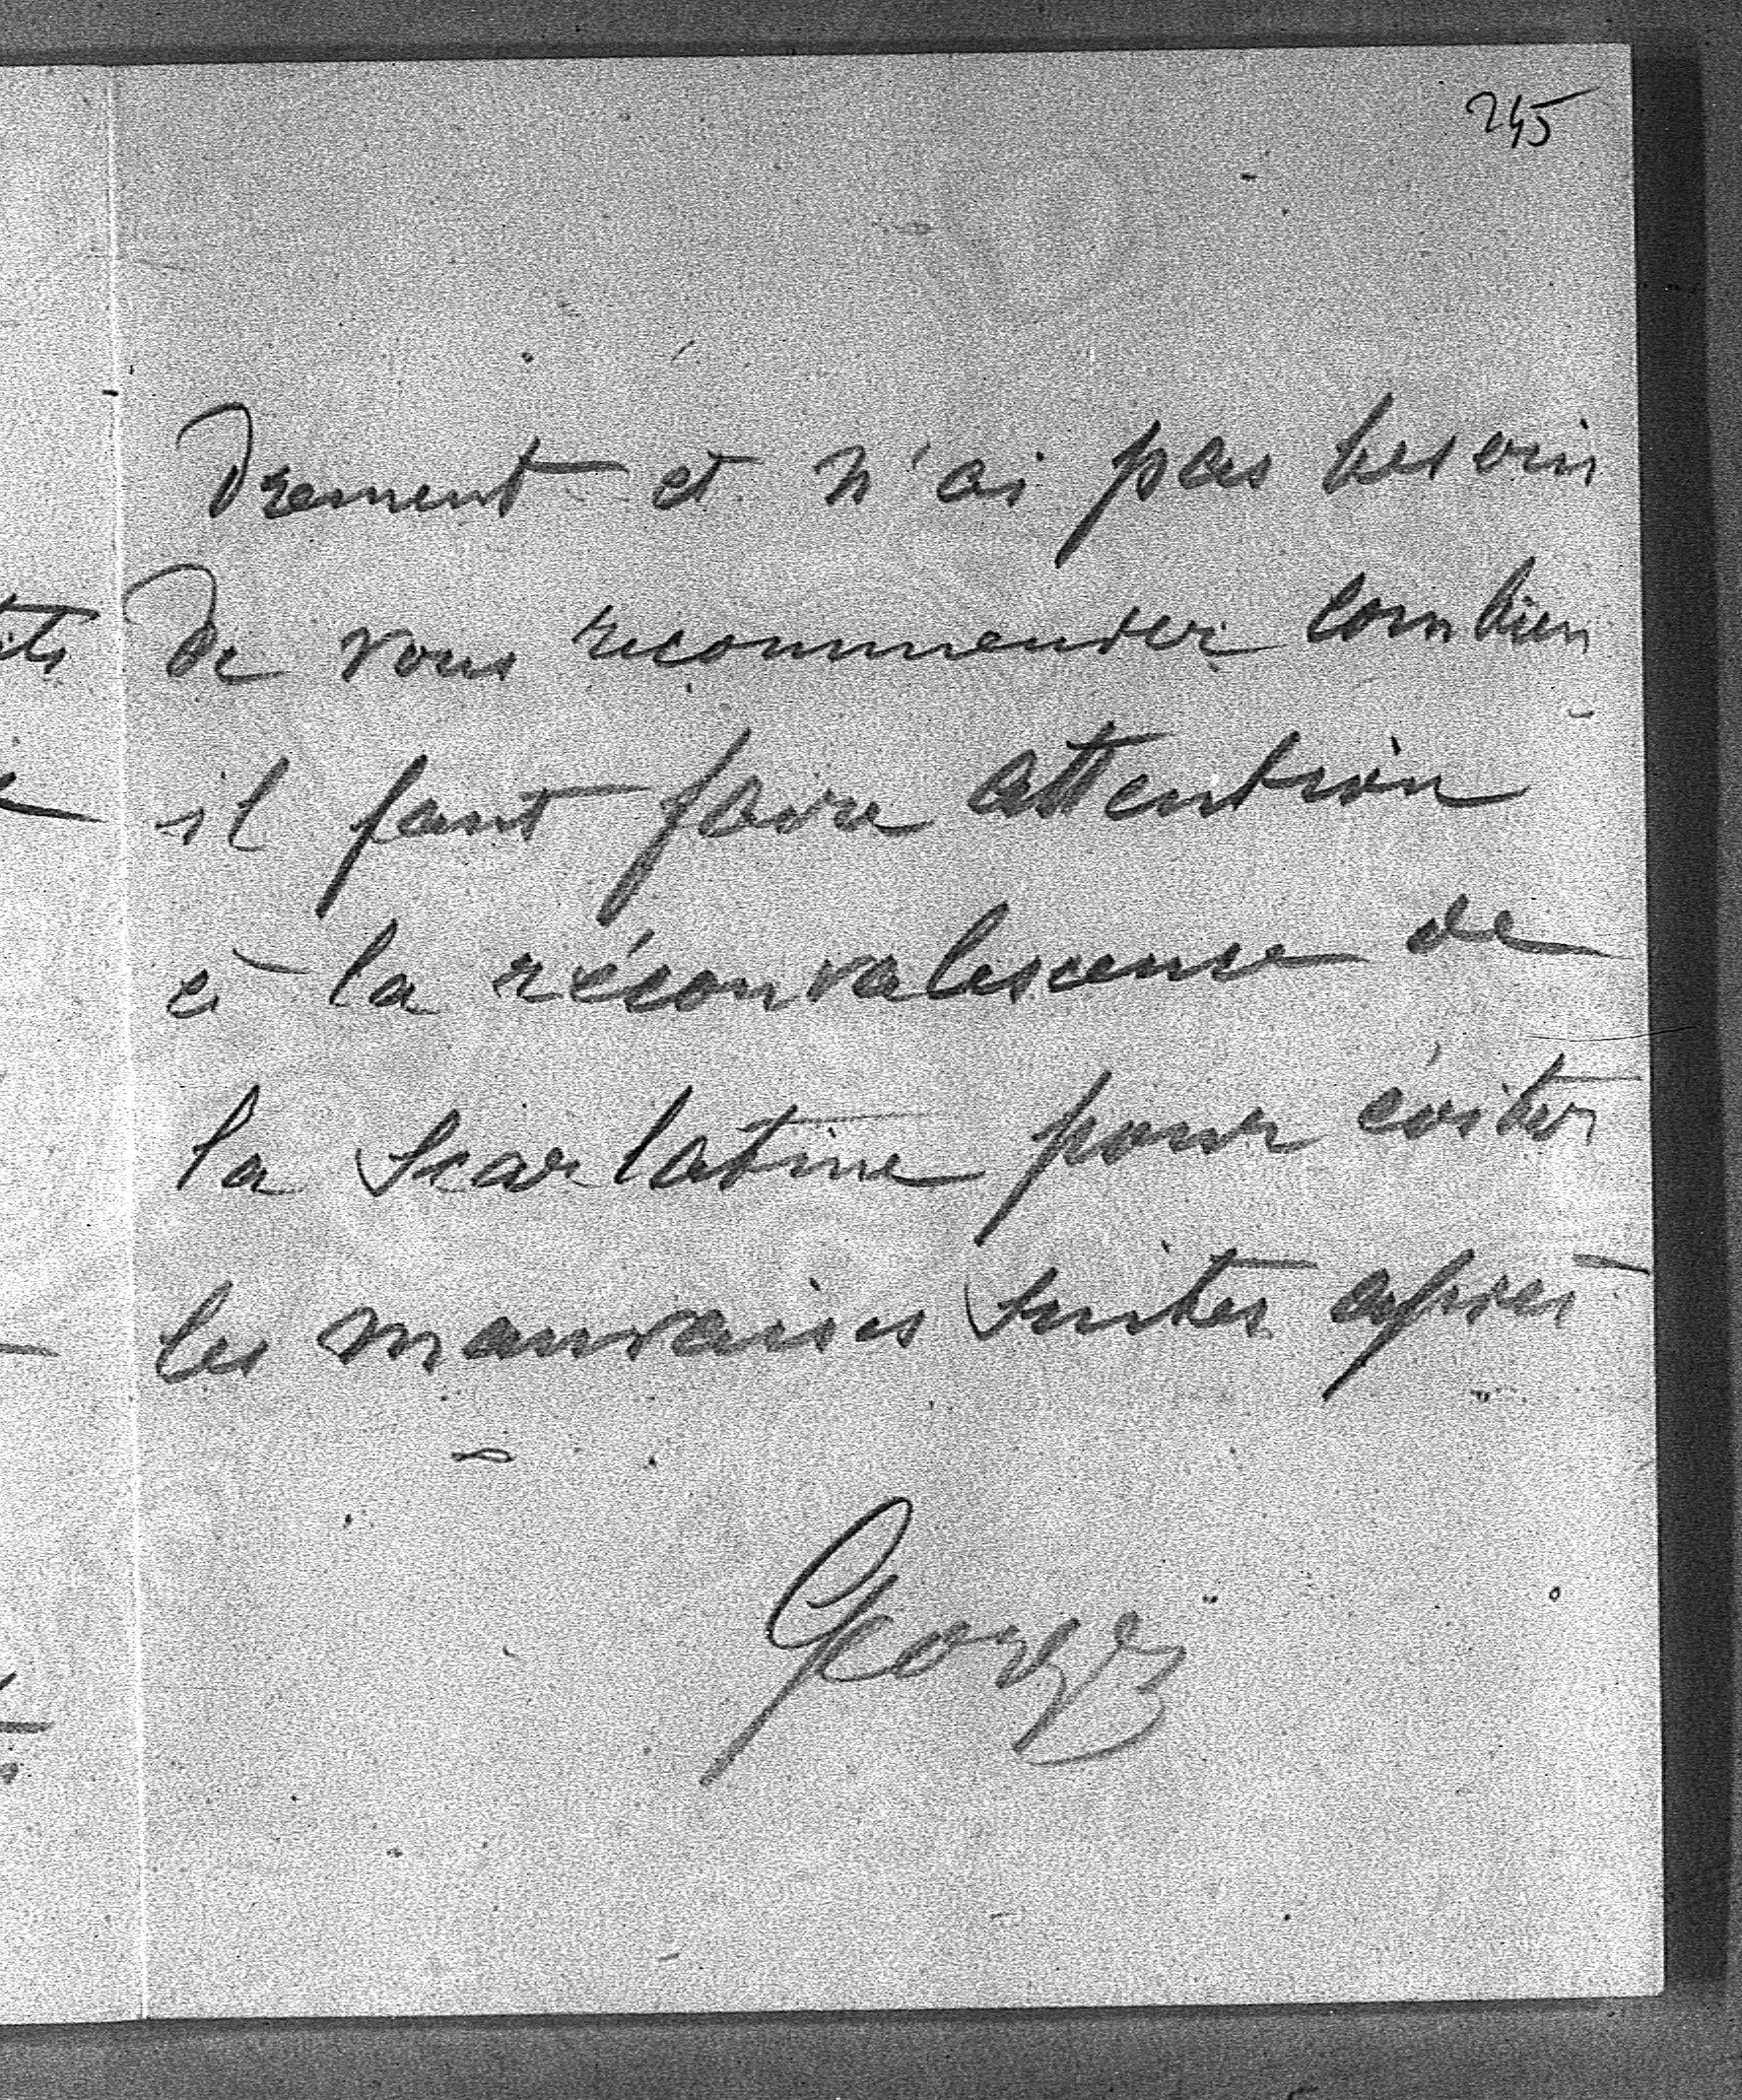 245
drement et n'ai pas besoin
de vous recommender combien
il faut faire attention
à la réconvalescence de
la Scarlatine pour éviter
les mauvaises suites après
Georges